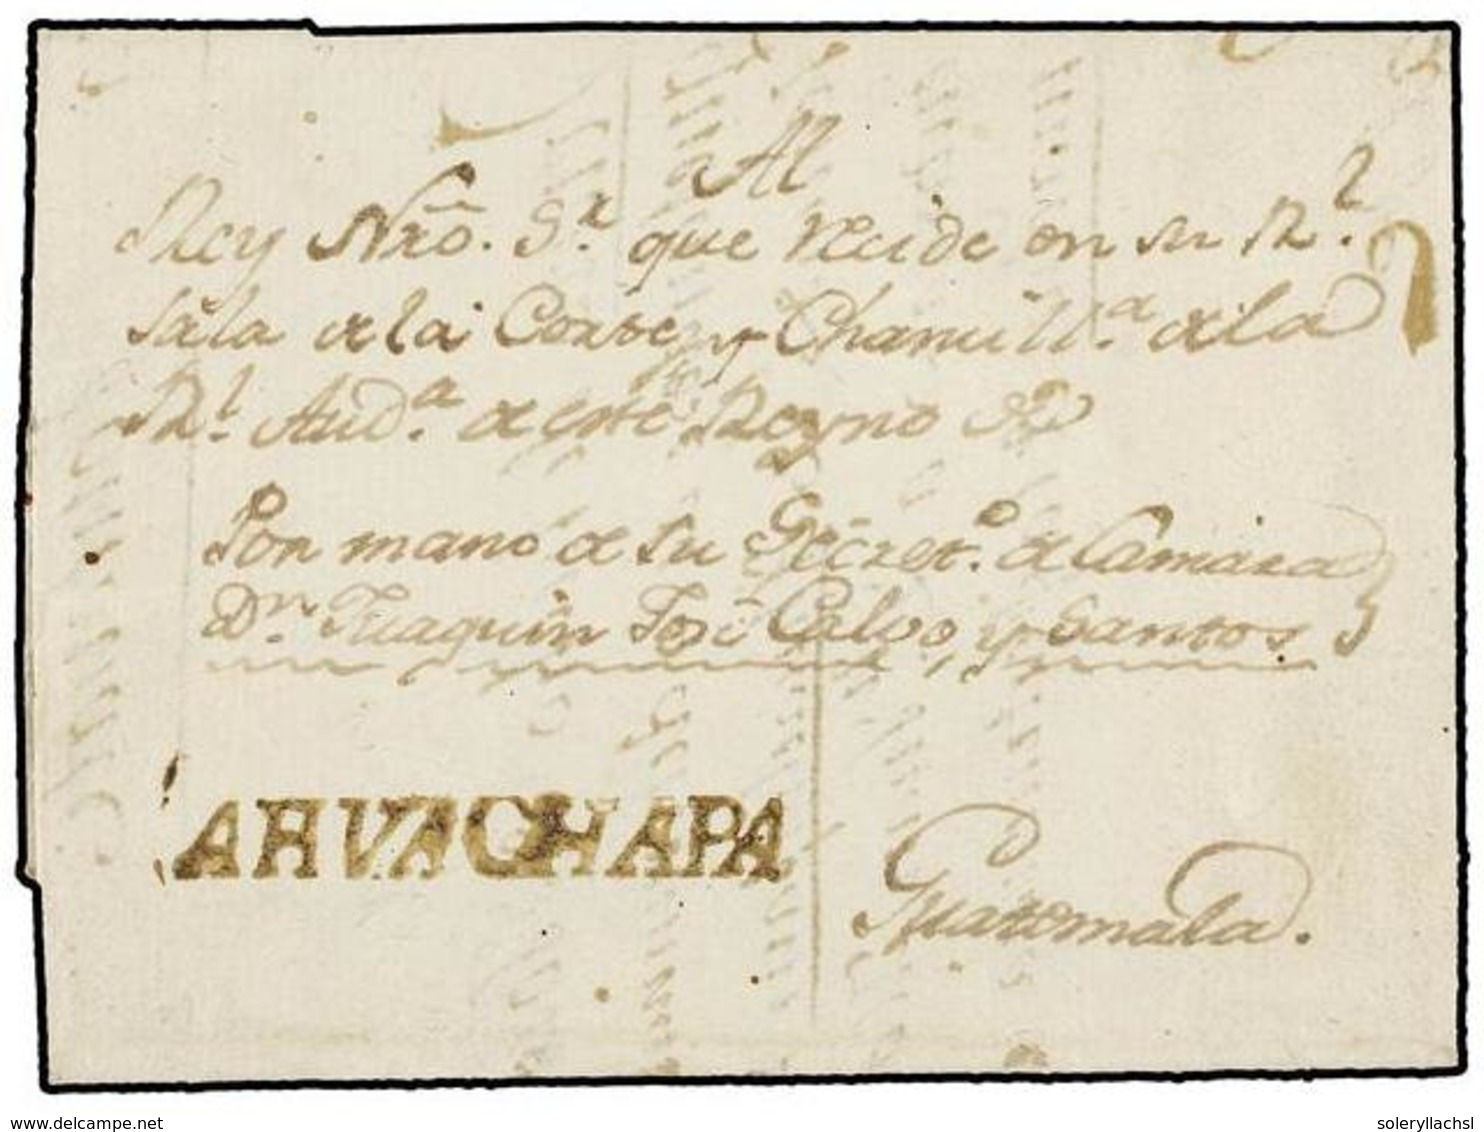 Al
Rey Nrõ. Sr. que recide en su Rl.
Sala de la Corte y Chansill.a de la
Rl. Aud.a de este Reyno &a
Por mano de su Secret.o de Camara
Dn. Juaquin José Calvo, y Santos
AHVACHAPA
Guatemala.
www.delcampe.net
soleryllachsl